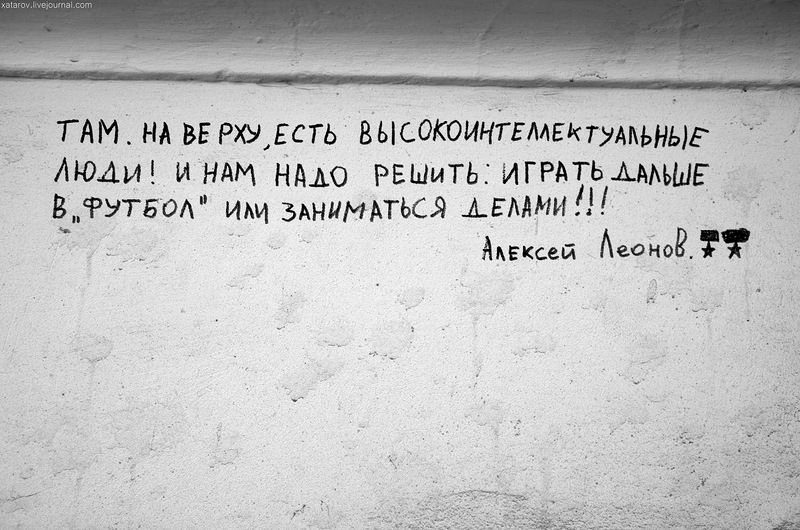 xatarov.livejournal.com
ТАМ. НА ВЕРХУ, ЕСТЬ ВЫСОКОИНТЕЛЛЕКТУАЛЬНЫЕ
ЛЮДИ! И НАМ НАДО РЕШИТЬ: ИГРАТЬ ДАЛЬШЕ
В „ФУТБОЛ" ИЛИ ЗАНИМАТЬСЯ ДЕЛАМИ!!!
Алексей Леонов.